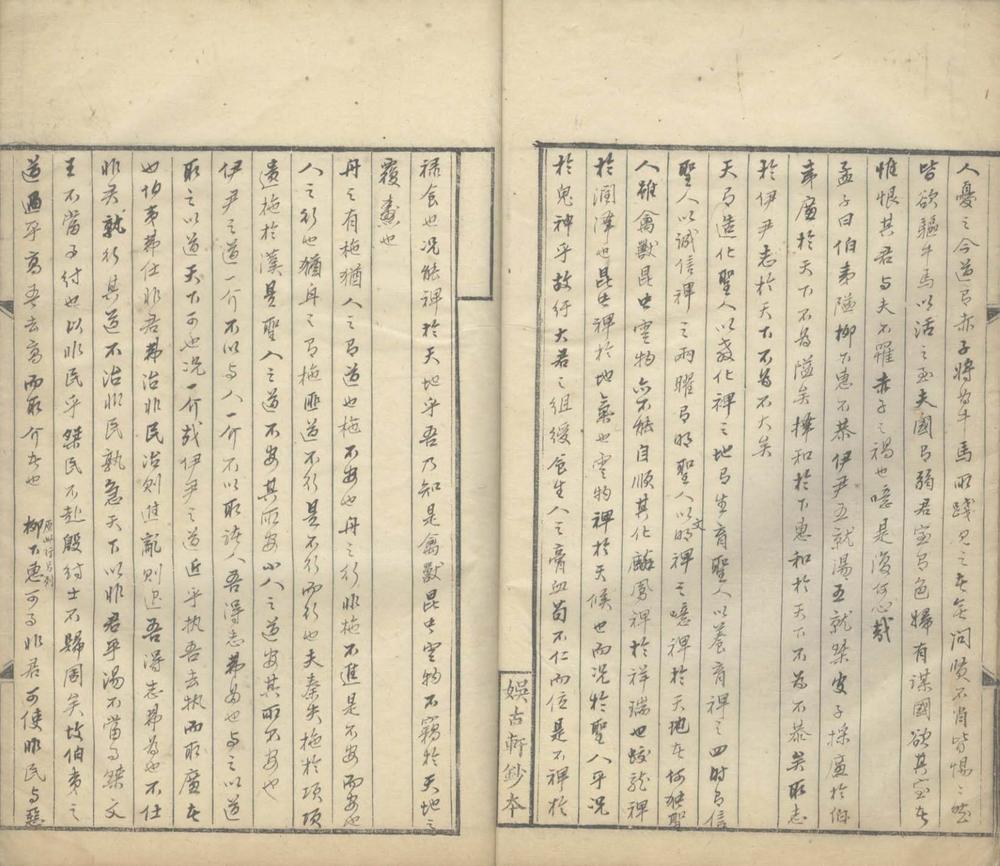 人憂之今道有赤子將為牛馬所踐見之者無問賢不肖皆惕惕然
皆欲驅牛馬以活之至夫國有弱君室有色婦有謀國欲其室者
惟恨其君與夫不罹赤子之禍也噫是復何心哉
孟子曰伯夷隘柳下惠不恭伊尹五就湯五就桀皮子採廉於伯
夷廉於天下不為隘矣擇和於下惠和於天下不為不恭矣取志
於伊尹志於天下不為不大矣
天有造化聖人以教化裨之地有生育聖人以養育裨之四時有信
聖人以誠信裨之兩曜有明聖人以文明裨之噫裨於天地者何獨聖
人雖禽獸昆虫靈物亦不能自順其化麟鳳裨於祥瑞也蛟龍裨
於潤澤也昆虫裨於地氣也靈物裨於天候也而況於聖人乎況
於鬼神乎故紆大君之組綬食生人之膏血苟不仁而位是不裨於
娛古軒鈔本
祿食也況能裨於天地乎吾乃知是禽獸昆虫靈物不竊於天地之
覆燾也
舟之有柁猶人之有道也柁不安也舟之行非柁不進是不安而安也
人之行也猶舟之有柁匪道不行是不行而行也夫秦失柁於項項
遺柁於漢是聖人之道不安其所安小人之道安其所不安也
伊尹之道一介不以與人一介不以取諸人吾得志弗為也與之以道
取之以道天下可也況一介哉伊尹之道近乎執吾去執而取廣者
也伯夷弗仕非君弗治非民治則進亂則退吾得志弗為也不仕
非君孰行其道不治非民孰急天下以非君乎湯不當事桀文
王不當事紂也以非民乎桀民不赴殷紂士不歸周矣故伯夷之
道過乎高吾去高而取介者也 原此行另列 柳下惠可事非君可使非民與惡